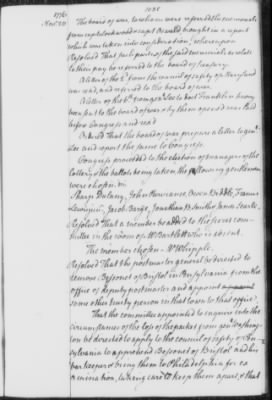 1776
Nov. 20
The board of war, to whom were referred the
brought in a report
which was taken into consideration; whereupon
Resolved That such parts of the said as relate
to their pay be referred to the board of treasury.
A letter of the from the council of safety of Maryland
was read, and referred to the board of war.
A letter of the from
been sent to the board of war & by them opened was laid
before Congress and read
Ordered That the board of war prepare a letter
and report the same to Congress.
Congress proceeded to the election of managers of the
lottery & the ballots being taken, the following gentlemen
were chosen, viz
Sharp Delany, John Purviance, Owen Biddle,
Lewis, Jacob Barge, Jonathan B. Smith & James Searle.
Resolved That a member be added to the secret com-
mittee in the room of Mr Bartlett who is absent.
The member chosen Mr Whipple.
Resolved That the postmaster general be directed to
remove Bessonet of Bristol in Pensylvania from the
office of deputy postmaster and appoint
some other trusty person in that town to that office.
That the committee appointed to enquire into the
circumstances of the loss of the packet from genl Washing-
ton be directed to apply to the council of safety of Pen-
sylvania to apprehend Bessonet of Bristol and his
barkeeper & bring them to Philadelphia for ex-
amination, taking care to keep them apart, & that